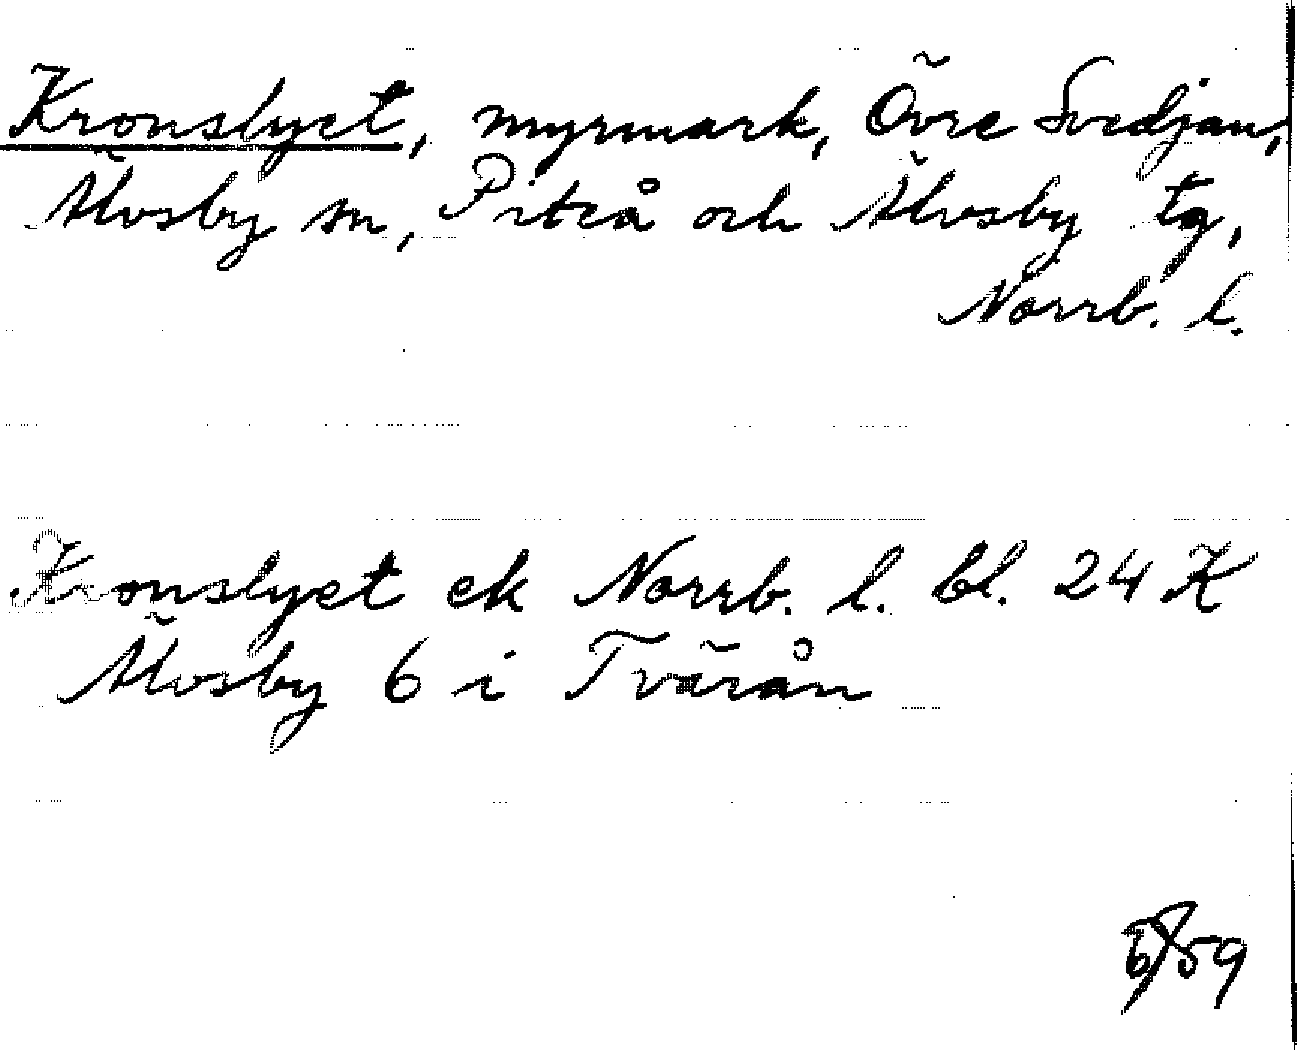 Kronslyet, myrmark, Övre Svedjan,
Älvsby sn, Piteå och Älvsby tg,
Norrb. l.
Kronslyet ek Norrb. l. bl. 24 K
Älvsby 6 i Tvärån
59